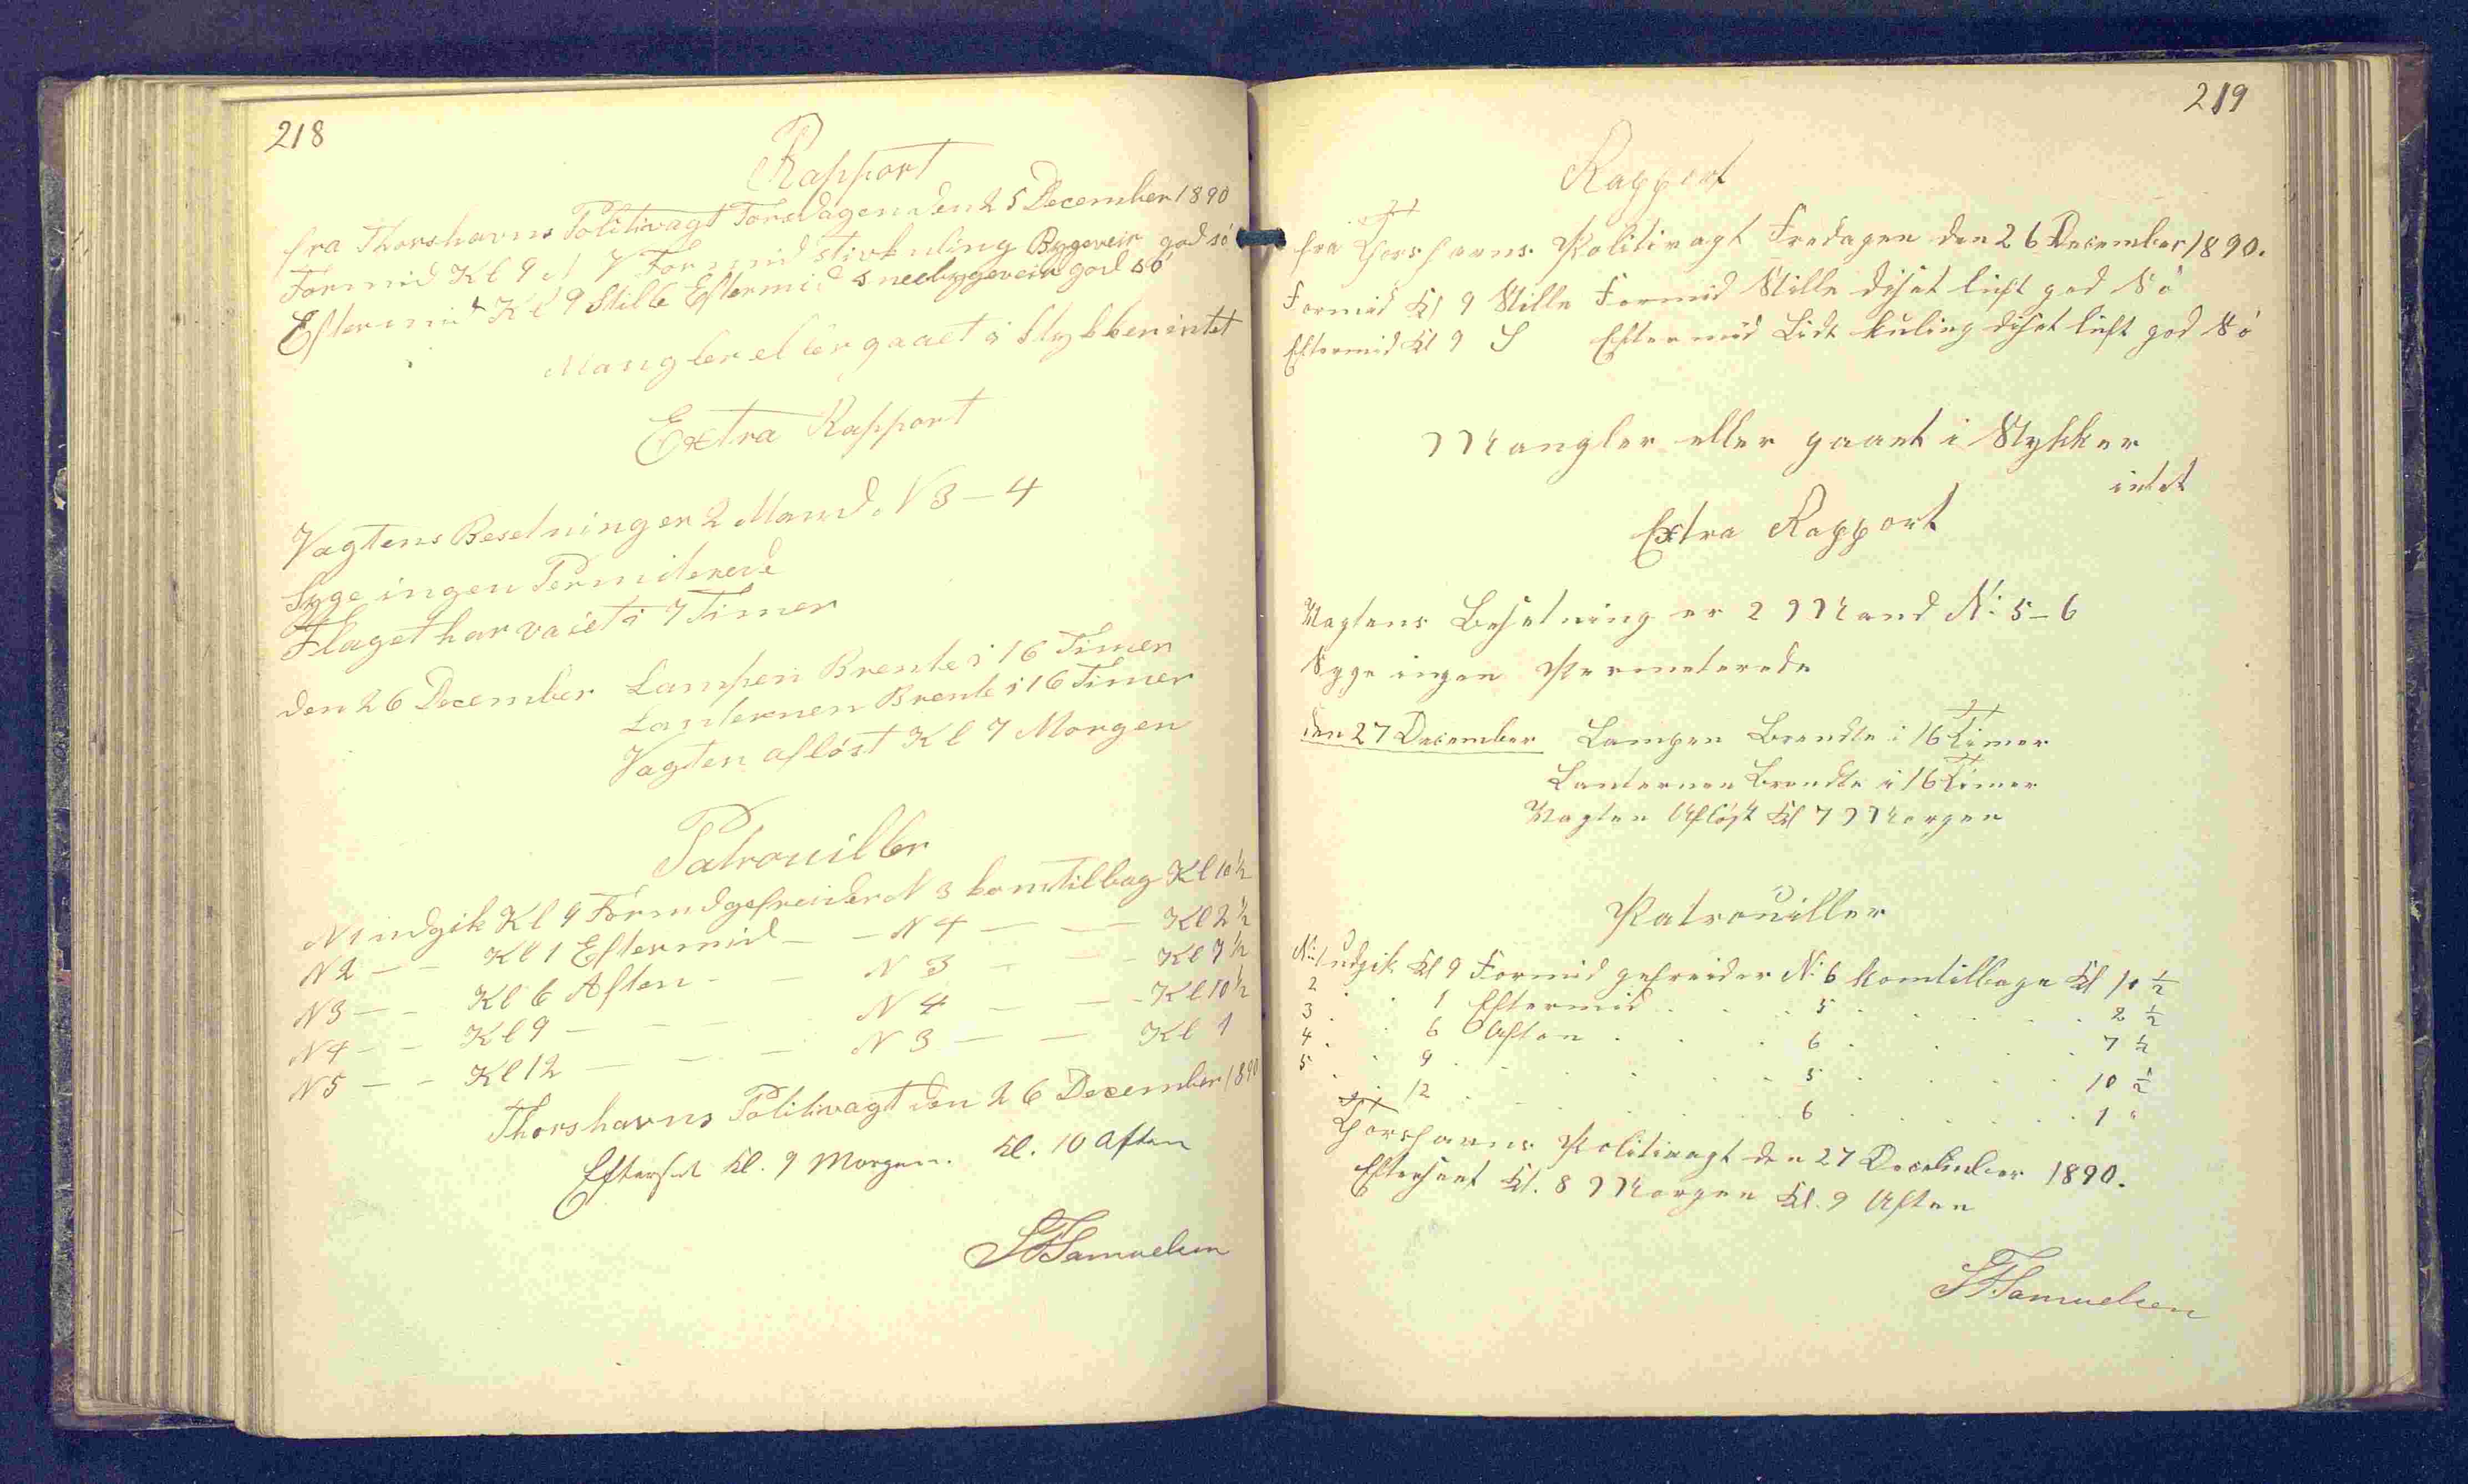 218
Rapport
fra Thorshavns Politivagt Torsdagen den 25 December 1890
Formid Kl 9 N V Formid stivkuling Bygeveir god sö
Eftermid Kl 9 Stille Eftermid sneebygeveir god sö
Mangler eller gaaet i Stykker intet
Extra Rapport
Vagtens Besetning er 2 Mand N 3 – 4
Syge ingen Permiterede
Flaget har vaiet i 7 Timer
den 26 December Lampen Brente i 16 Timer
Lanternen Brente i 16 Timer
Vagten aflöst Kl 7 Morgen
Patrouiller
N 1 udgik Kl 9 Formid gefreider N 3 kom tilbag Kl 10 ½
N 2 — — Kl 1 Eftermid — — N 4 — — — Kl 2 ½
N 3 — — Kl 6 Aften - — N 3 — — — Kl 7 ½
N 4 — — Kl 9 — — — N 4 — — — Kl 10 ½
N 5 — — Kl 12 — — — N 3 — — Kl 1
Thorshavns Politivagt den 26 December 1890
Efterset Kl. 9 Morgen. Kl. 10 Aften
Samuelsen
219
Rapport
fra Thorshavns Politivagt Fredagen den 26 December 1890.
Formid Kl 9 Stille Formid Stille diset luft god Sö
Eftermid Kl 9 S Eftermid Lidt kuling diset luft god Sö
Mangler eller gaaet i Stykker
intet
Extra Rapport
Vagtens Besetning er 2 Mand N: 5 – 6
Syge ingen Permeterede
den 27 December Lampen Brendte i 16 Timer
Lanternen Brendte i 16 Timer
Vagten Aflöst Kl 7 Morgen
Patrouiller
N: 1 udgik Kl 9 Formid gefreider N: 6 kom tilbage Kl 10 ½
2 . . 1 Eftermid . . . 5 . . . . . 2 ½
3 . . 6 Aften . . . 6 . . . . 7 ½
4 . . 9 . . . . . 5 . . . . 10 ½
5 . . 12 . . . . . 6 . . . . . 1 "
Thorshavns Politivagt den 27 December 1890.
Efterseet Kl. 8 Morgen Kl. 9 Aften
Samuelsen